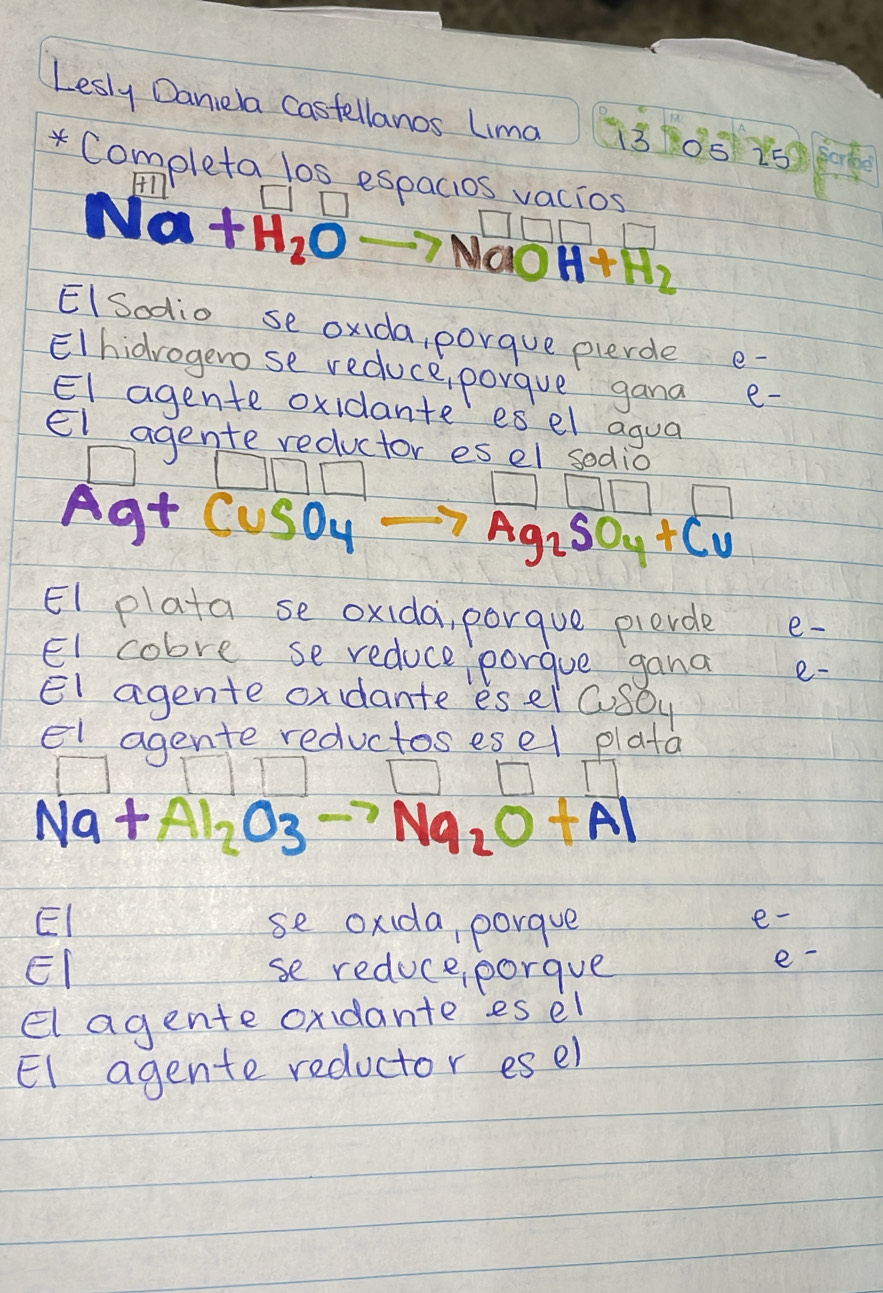 Lesly Daniela Castellanos Lima
D M A
13 05 25
Scribe
* Completa los espacios vacíos
+1
Na + H₂O → NaOH + H₂
El Sodio se oxida, porque pierde e-
El hidrogeno se reduce, porque gana e-
El agente oxidante es el agua
El agente reductor es el sodio
Ag + CuSO₄ → Ag₂SO₄ + Cu
El plata se oxida, porque pierde e-
El cobre se reduce, porque gana e-
El agente oxidante es el CuSO₄
El agente reductos es el plata
Na + Al₂O₃ → Na₂O + Al
El se oxida, porque e-
El se reduce, porque e-
El agente oxidante es el
El agente reductor es el